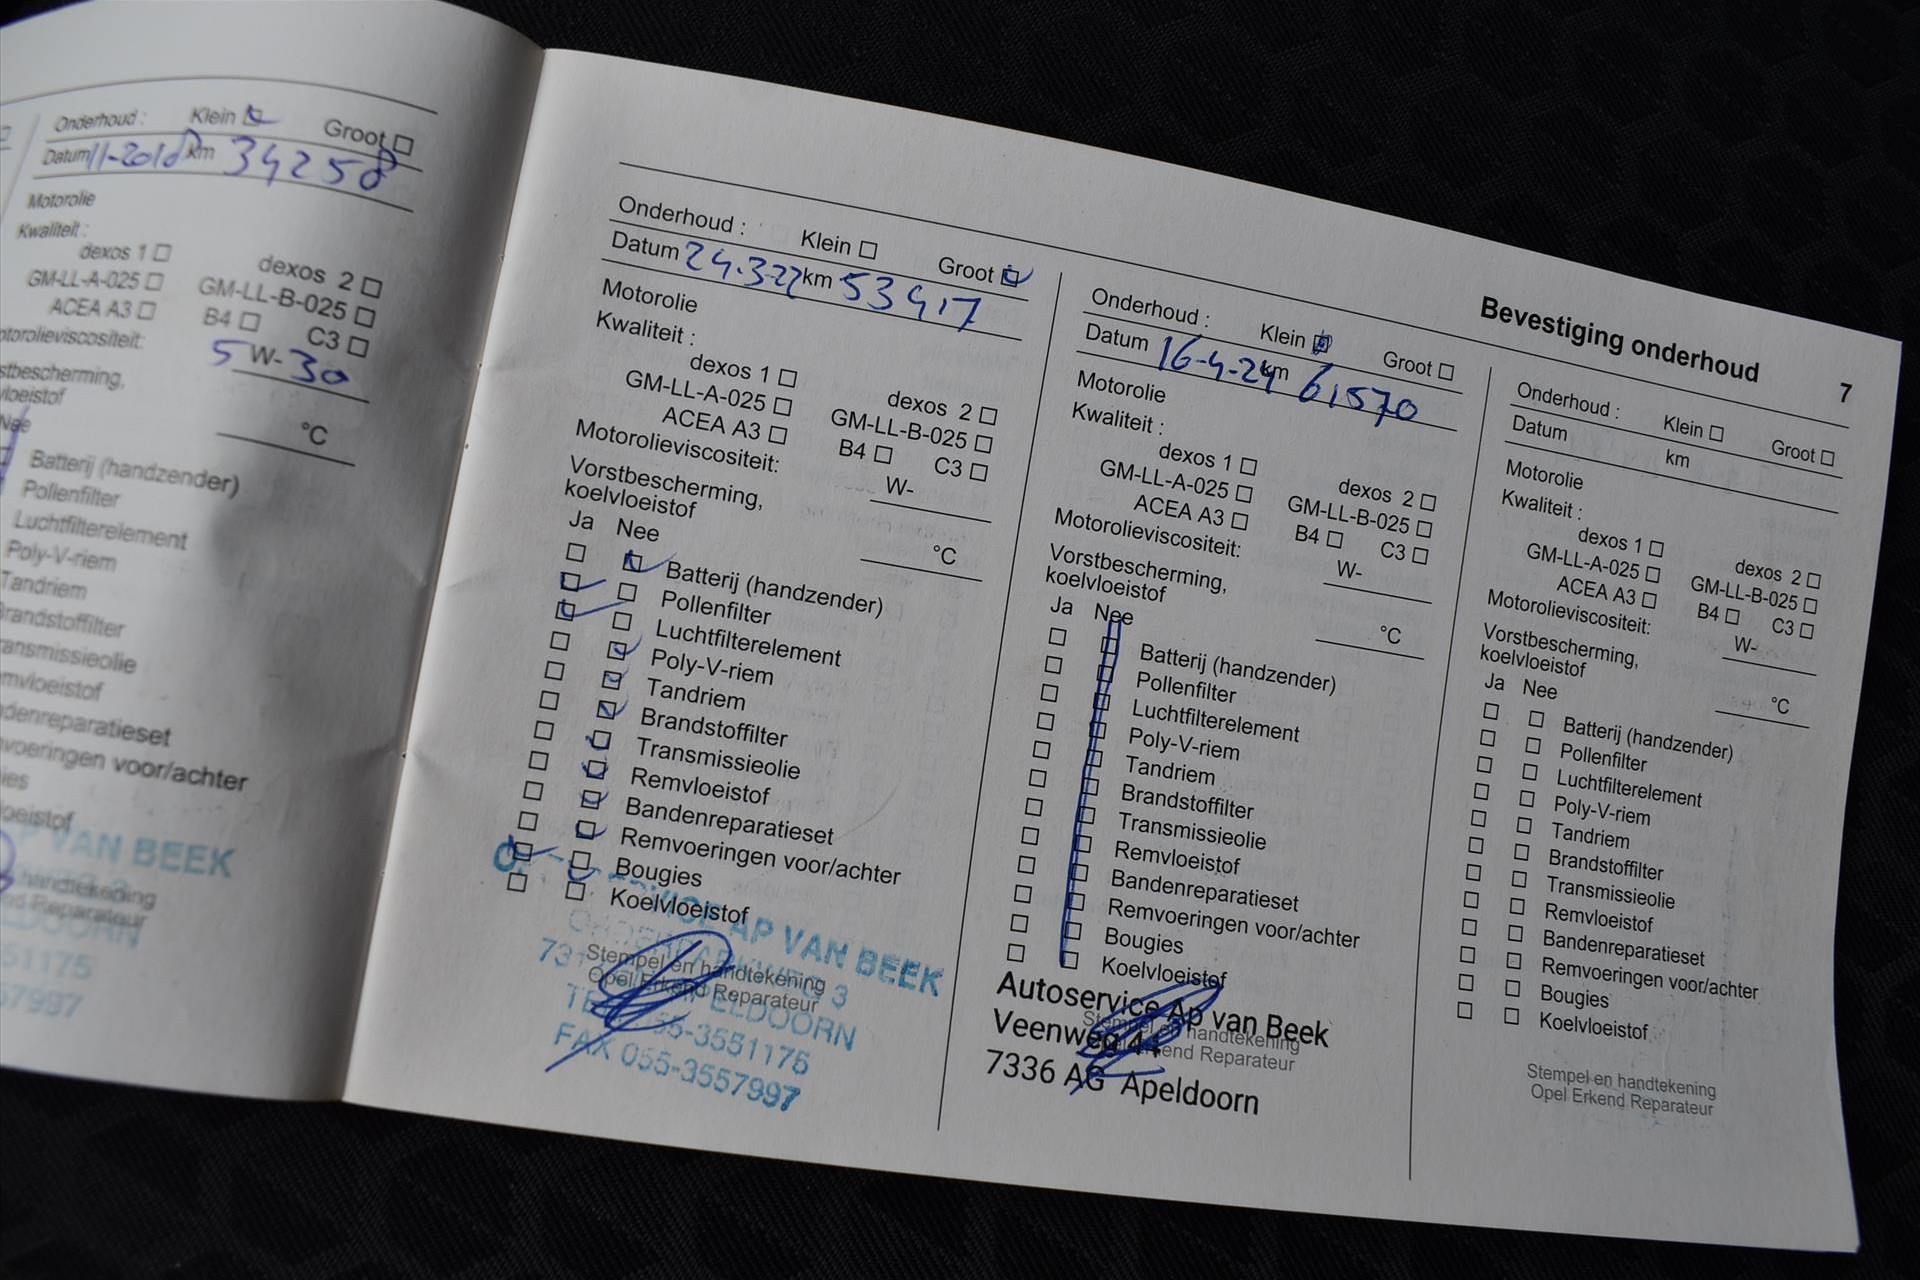 Onderhoud : Klein Groot
Datum 11-2018 km 34258
Motorolie
Kwaliteit :
dexos 1 dexos 2
GM-LL-A-025 GM-LL-B-025
ACEA A3 B4 C3
5 W- 30
°C
Nee
Batterij (handzender)
Pollenfilter
Luchtfilterelement
Poly-V-riem
Tandriem
voor/achter
VAN BEEK
Bevestiging onderhoud 7
Onderhoud : Klein Groot
Datum 24.3.22 km 53417
Motorolie
Kwaliteit :
dexos 1 dexos 2
GM-LL-A-025 GM-LL-B-025
ACEA A3 B4 C3
Motorolieviscositeit: W-
Vorstbescherming,
koelvloeistof °C
Ja Nee
Batterij (handzender)
Pollenfilter
Luchtfilterelement
Poly-V-riem
Tandriem
Brandstoffilter
Transmissieolie
Remvloeistof
Bandenreparatieset
Remvoeringen voor/achter
Bougies
Koelvloeistof
AP VAN BEEK
Stempel en handtekening
Opel Erkend Reparateur
FAX 055-3557997
Onderhoud : Klein Groot
Datum 16-4-24 km 61570
Motorolie
Kwaliteit :
dexos 1 dexos 2
GM-LL-A-025 GM-LL-B-025
ACEA A3 B4 C3
Motorolieviscositeit: W-
Vorstbescherming,
koelvloeistof °C
Ja Nee
Batterij (handzender)
Pollenfilter
Luchtfilterelement
Poly-V-riem
Tandriem
Brandstoffilter
Transmissieolie
Remvloeistof
Bandenreparatieset
Remvoeringen voor/achter
Bougies
Koelvloeistof
Autoservice Ap van Beek
Stempel en handtekening
Veenweg 44
Erkend Reparateur
7336 AG Apeldoorn
Onderhoud : Klein Groot
Datum km
Motorolie
Kwaliteit :
dexos 1 dexos 2
GM-LL-A-025 GM-LL-B-025
ACEA A3 B4 C3
Motorolieviscositeit: W-
Vorstbescherming,
koelvloeistof °C
Ja Nee
Batterij (handzender)
Pollenfilter
Luchtfilterelement
Poly-V-riem
Tandriem
Brandstoffilter
Transmissieolie
Remvloeistof
Bandenreparatieset
Remvoeringen voor/achter
Bougies
Koelvloeistof
Stempel en handtekening
Opel Erkend Reparateur